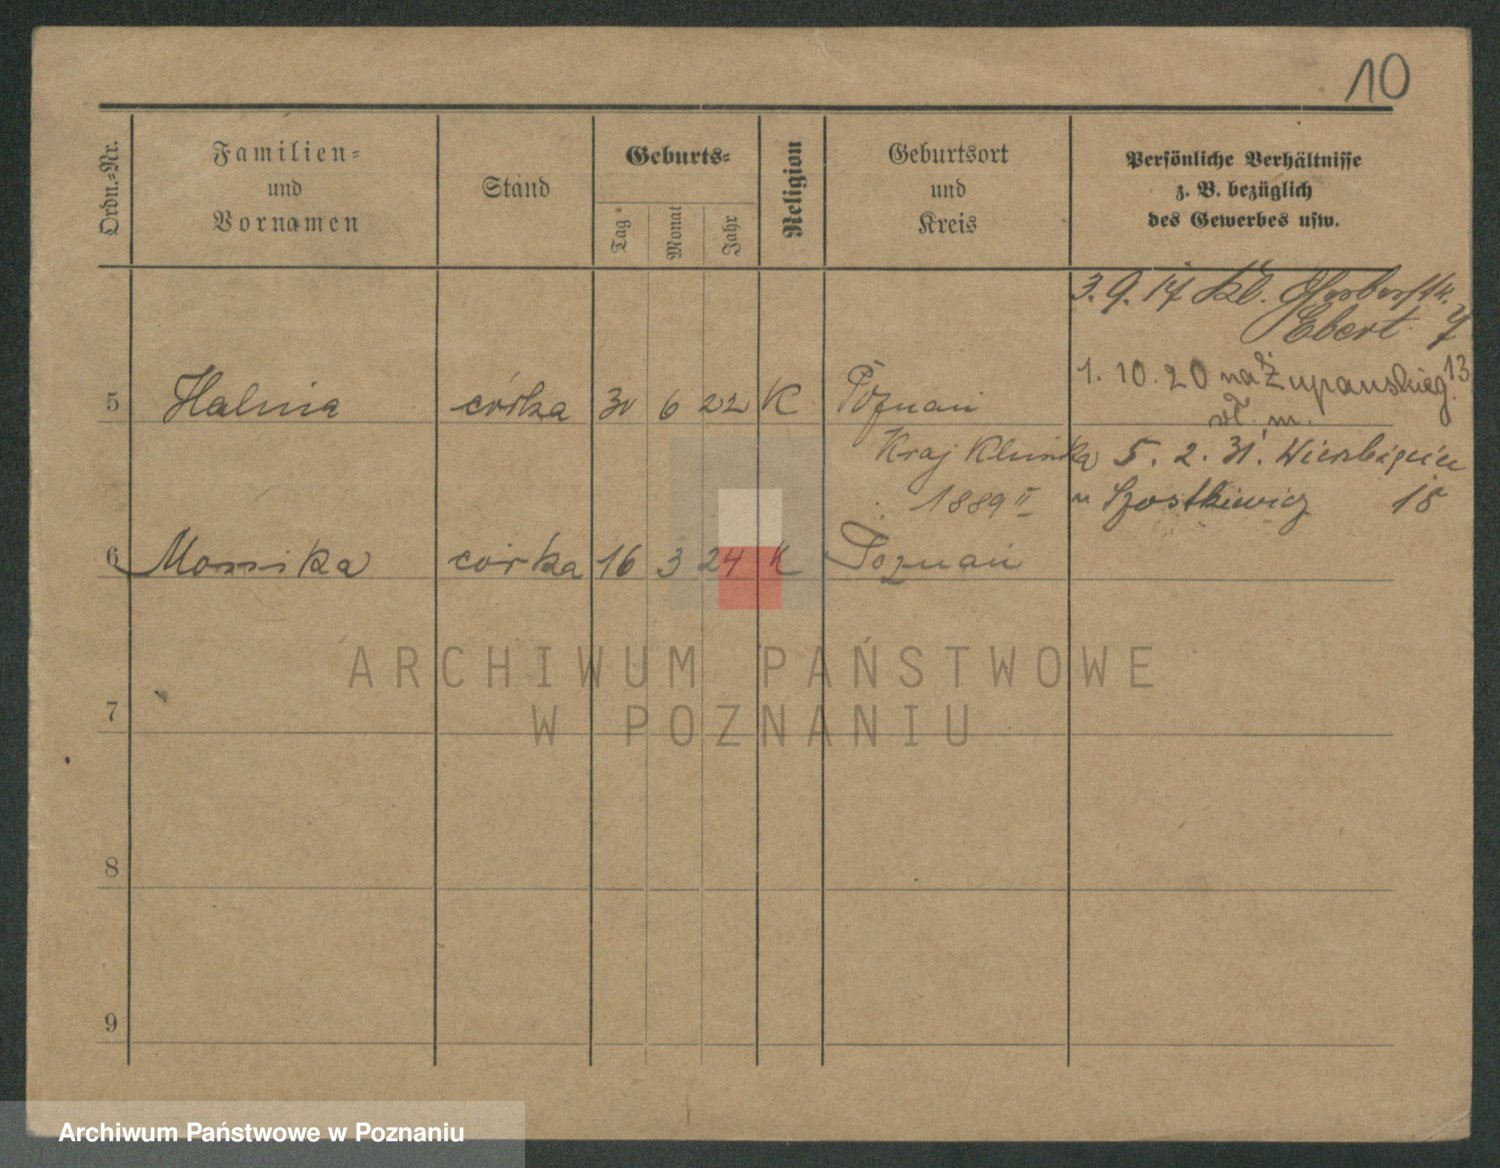 10
Ordn.-Nr.
Familien-
und
Vornamen
Stand
Geburts-
Tag
Monat
Jahr
Religion
Geburtsort
und
Kreis
Persönliche Verhältnisse
z. B. bezüglich
des Gewerbes usw.
3. 9. 17 Kl.
Ebert 7
1. 10. 20 na Żupańskieg. 13
wł. m.
5 Halina córka 30 6 22 K Poznań
Kraj Klinika 5. 2. 31.
1889 II u Szostkiewicz 18
6 Monika córka 16 3 24 K Poznań
7
8
9
ARCHIWUM PAŃSTWOWE
W POZNANIU
Archiwum Państwowe w Poznaniu